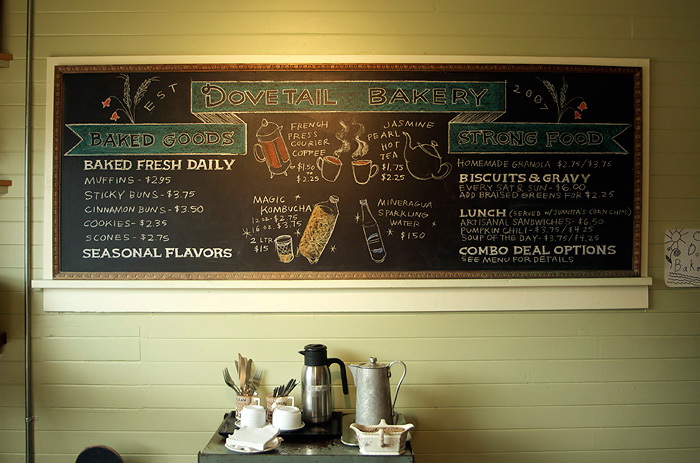 EST
2007
DOVETAIL BAKERY
BAKED GOODS
BAKED FRESH DAILY
MUFFINS - $2.95
STICKY BUNS - $3.75
CINNAMON BUNS - $3.50
COOKIES - $2.35
SCONES - $2.75
SEASONAL FLAVORS
FRENCH
PRESS
COURIER
COFFEE
$1.50
$2.25
JASMINE
PEARL
HOT
TEA
$1.75
$2.25
MAGIC
KOMBUCHA
12 oz. $2.75
16 oz. $3.75
2 LTR
$15
MINERAGUA
SPARKLING
WATER
$1.50
STRONG FOOD
HOMEMADE GRANOLA $2.75/$3.75
BISCUITS & GRAVY
EVERY SAT & SUN - $6.00
ADD BRAISED GREENS FOR $2.25
LUNCH (SERVED W/JUANITA'S CORN CHIPS)
ARTISANAL SANDWICHES - $6.50
PUMPKIN CHILI - $3.75/$4.25
SOUP OF THE DAY - $3.75/$4.25
COMBO DEAL OPTIONS
SEE MENU FOR DETAILS